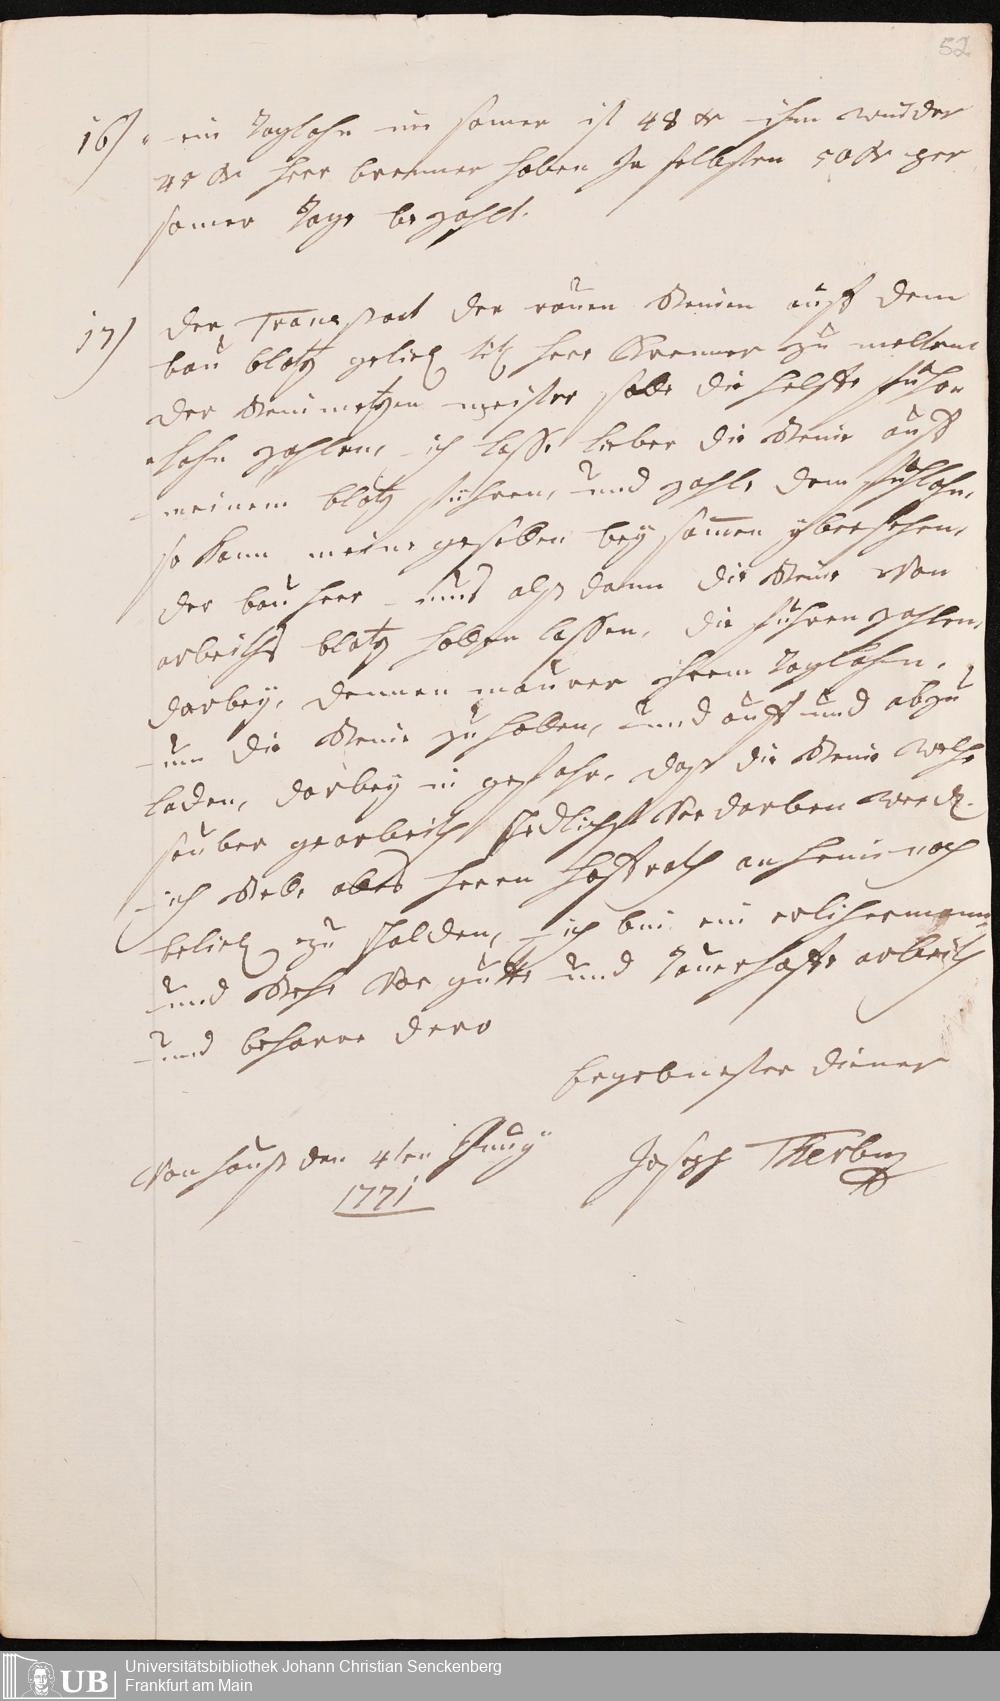 52
16) ein Taglohn im somer ist 48 xr ihm windter
45 xr herr brenner haben Ja selbsten 50 xr per
somer Tags bezahlt.
17) der Transport der rauen Steinen auff dem
bau blatz belieb tit herr Brenner zu melten
der Steinmetzen meister solle die helffte fuhr
lohn zahlen, ich lasse lieber die Steine auff
meinem blatz führen, und zahle dem fuhlohn,
so kann meine gesellen beysamen ybersehen,
der bauherr mus alß dann die Steine von
arbeiths blatz hollen lassen, die fuhren zahlen,
darbey, dennen maurer ihrem Taglohn,
um die Steine zu hollen, und auff und abzu
laden, darbey in gefahr, daß die Steine welche
sauber gearbeith schedlich verdorben werd.
ich stelle alles herrn Hoffrath anheim nach
belieb zu schalden, ich bin ein erlicher mann
und stehe vor gutte und Tauerhaffte arbeith
und beharre dero
Ergebnester diener
Von hauß den 4ten Juny
1771
Joseph Therbu
Universitätsbibliothek Johann Christian Senckenberg
Frankfurt am Main
UB